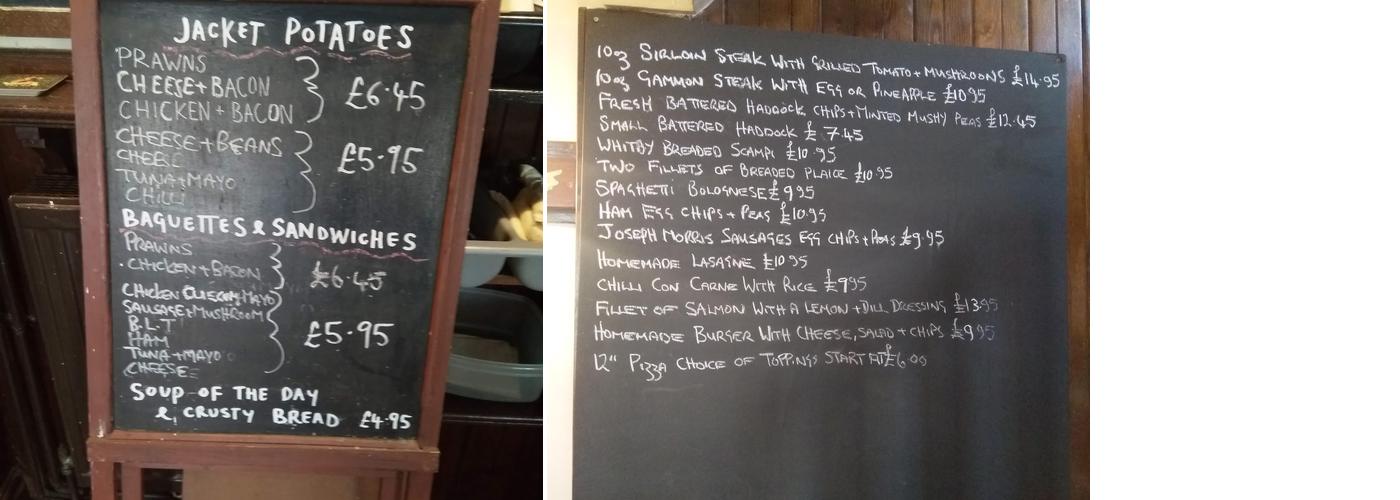 JACKET POTATOES
PRAWNS
CHEESE + BACON
CHICKEN + BACON
£6.45
CHEESE + BEANS
CHEESE
TUNA + MAYO
CHILLI
£5.95
BAGUETTES & SANDWICHES
PRAWNS
CHICKEN + BACON
£6.45
CHICKEN MAYO
SAUSAGE + MUSHROOM
B.L.T
HAM
TUNA + MAYO
CHEESE
£5.95
SOUP OF THE DAY
& CRUSTY BREAD £4.95
10oz SIRLOIN STEAK WITH GRILLED TOMATO + MUSHROOMS £14.95
10oz GAMMON STEAK WITH EGG OR PINEAPPLE £10.95
FRESH BATTERED HADDOCK, CHIPS + MINTED MUSHY PEAS £12.45
SMALL BATTERED HADDOCK £7.45
WHITBY BREADED SCAMPI £10.95
TWO FILLETS OF BREADED PLAICE £10.95
SPAGHETTI BOLOGNESE £9.95
HAM EGG CHIPS + PEAS £10.95
JOSEPH MORRIS SAUSAGES EGG CHIPS + PEAS £9.95
HOMEMADE LASAGNE £10.95
CHILLI CON CARNE WITH RICE £9.95
FILLET OF SALMON WITH A LEMON + DILL DRESSING £13.95
HOMEMADE BURGER WITH CHEESE, SALAD + CHIPS £9.95
12" PIZZA CHOICE OF TOPPINGS START AT £6.00